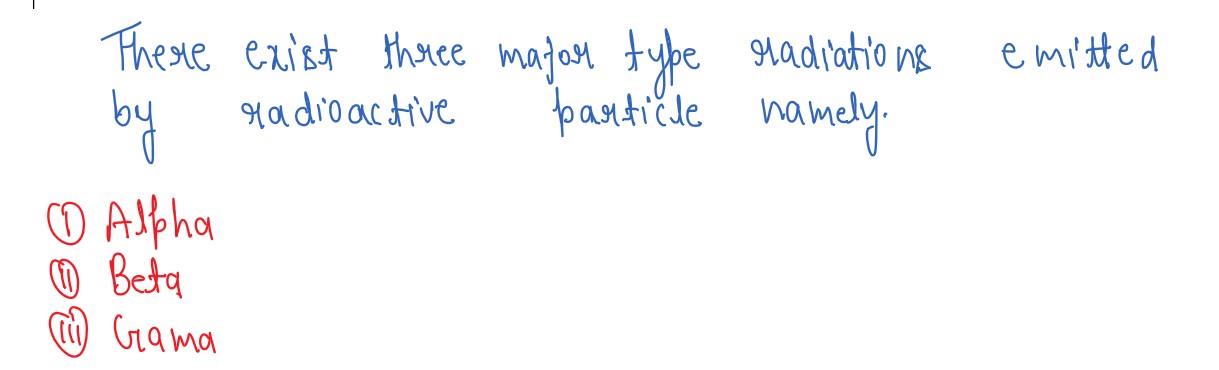 There exist three major type radiations emitted
by radioactive particle namely.
(i) Alpha
(ii) Beta
(iii) Gama